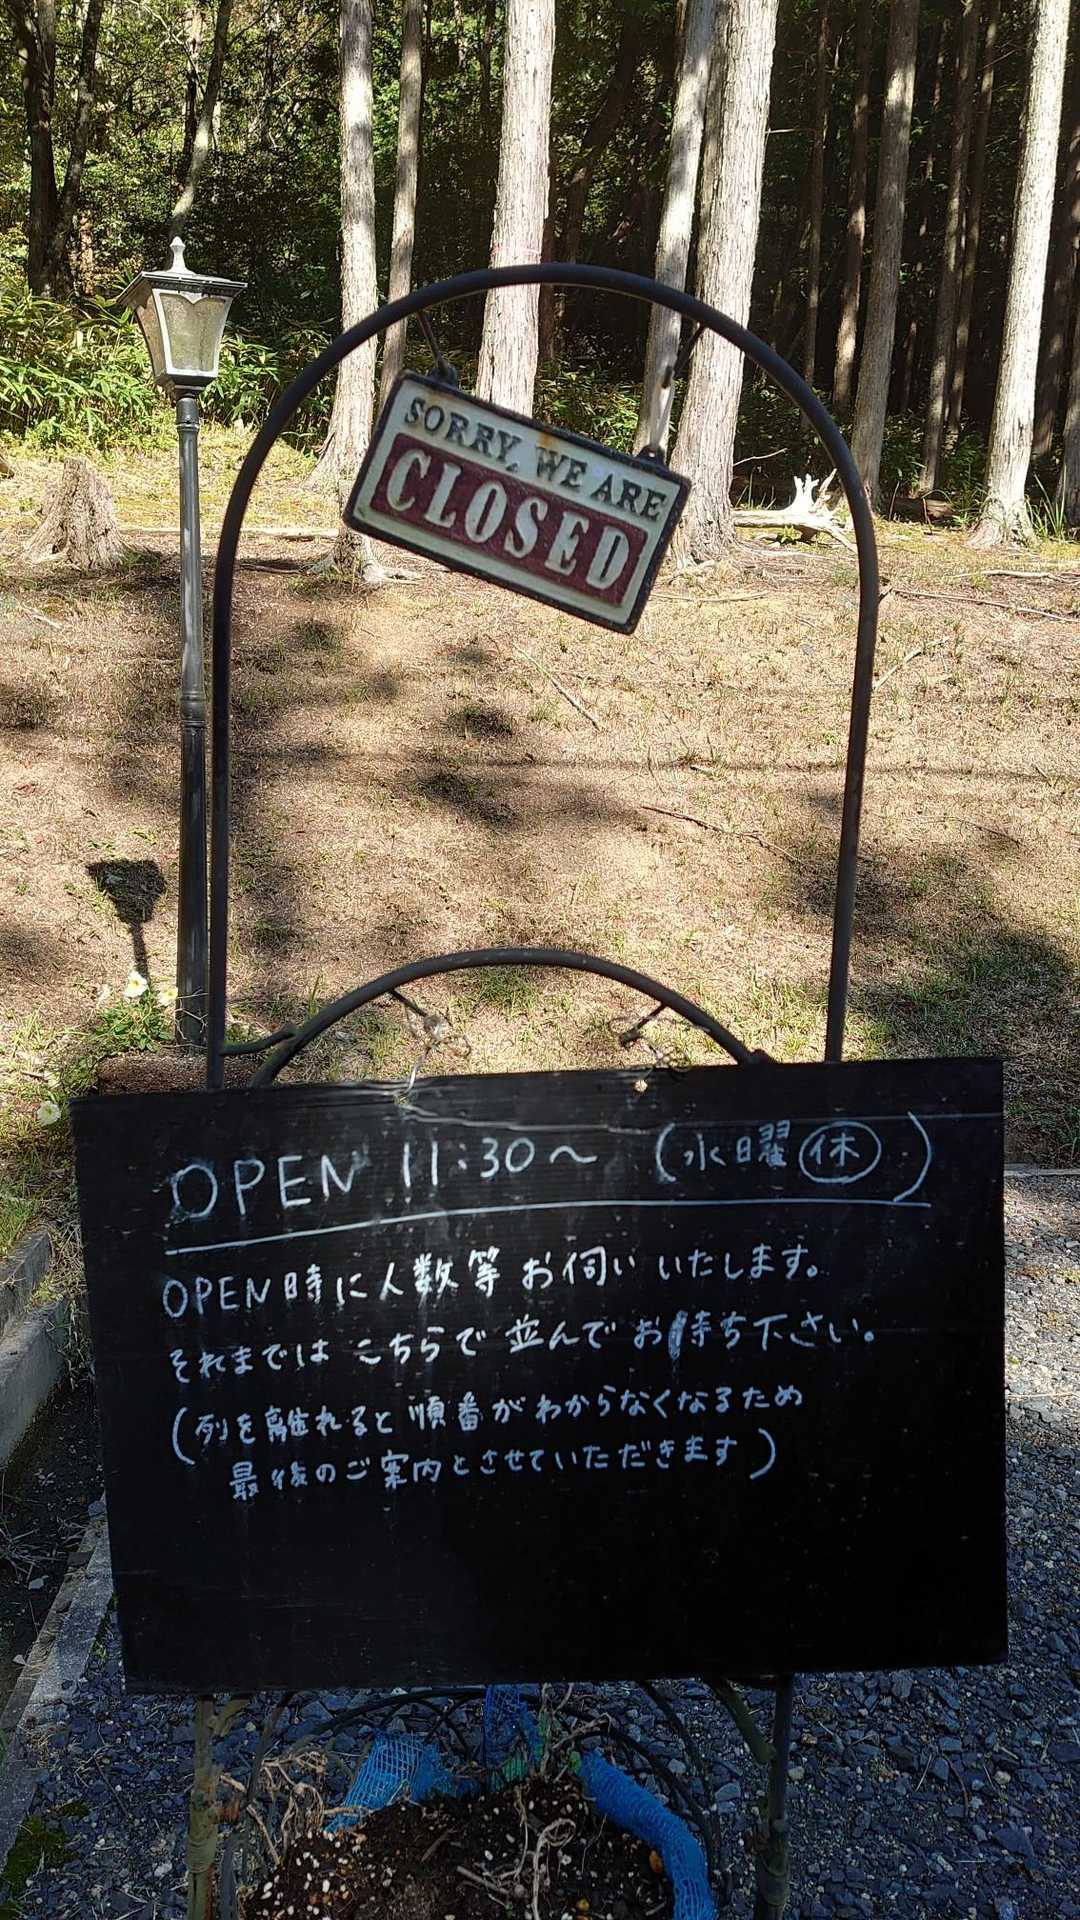 SORRY, WE ARE
CLOSED
OPEN 11:30～ (水曜日㊡)
OPEN時に人数等お伺いいたします。
それまではこちらで並んでお待ち下さい。
(列を離れると順番がわからなくなるため
最後のご案内とさせていただきます)